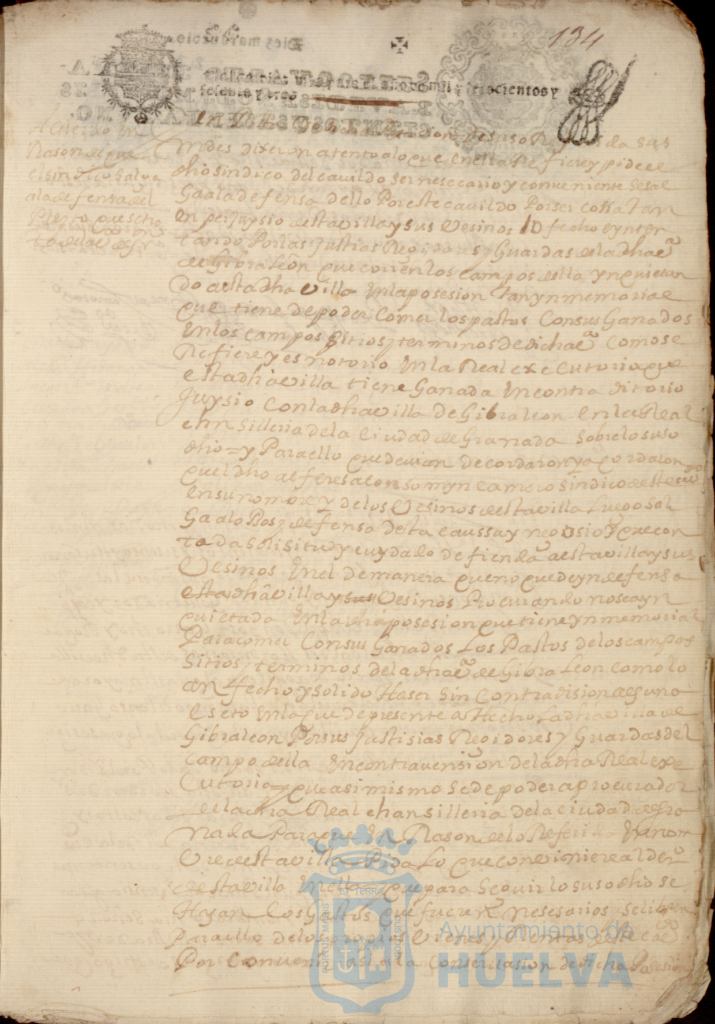 134
Diez marauedis
mil y seiscientos y
sesenta y tres
Acuerdo en
Rason de que
el sindico salga
a la defensa del
Pleyto que
mdes dixeron atento a lo que en ella Refiere y pide el
dho sindico del cauildo ser nesesario y conueniente se sal
ga a la defensa dello Por este cauildo Por ser cossa tan
En perjuysio desta villa y sus Vesinos
tando Por las Justisias Regidores y Guardas de la dha Va
de Gibraleon que corren los campos della ynquietan
do a esta dha Villa En la posesion tan ynmemorial
que tiene de poder Comer los pastos Con sus Ganados
En los campos sitios y terminos de dicha Va Como se
Refiere y es notorio En la Real executoria que
esta dha villa tiene Ganada En contraditorio
Juysio Con la dha villa de Gibraleon En la Real
chansilleria de la Ciudad de Granada Sobre lo suso
dho = y Para ello que deuian de acordar y acordaron
quel dho alferes alonso myn Camero Sindico deste cudo
En su nombre y de los Vesinos desta Villa Luego Sal
ga a la Bos y defensa desta caussa y negosio y que con
toda solisitud y cuydado defienda a esta villa y sus
Vesinos En el de manera que no quede yndefensa
esta dha villa y sus Vesinos Procurando no sea yn
quietada En la dha posesion que tiene ynmemorial
Para comer Con sus Ganados Los Pastos de los campos
Sitios y terminos de la dha Va de Gibraleon como lo
an fecho y solido Haser Sin Contradision alguna
eseto En la que de presente a Hecho La dha villa de
Gibraleon Por sus Justisias Regidores y Guardas del
campo della En contrauension de la dha Real exe
Cutoria y que asimismo se de poder a procurador
de la dha Real chansilleria de la ciudad de Gra
nada Para que En Rason de lo Referido En nom
bre desta villa Pida Lo que conviniere al dero
desta Villa En ella y que para Seguir lo suso dho se
Hagan Los Gastos que fueren nesesarios y se libren
Para ello de los propios Vienes y Rentas deste
Por Conuenir asi a la Conseruacion de dicha Posesion
Ayuntamiento de
HUELVA